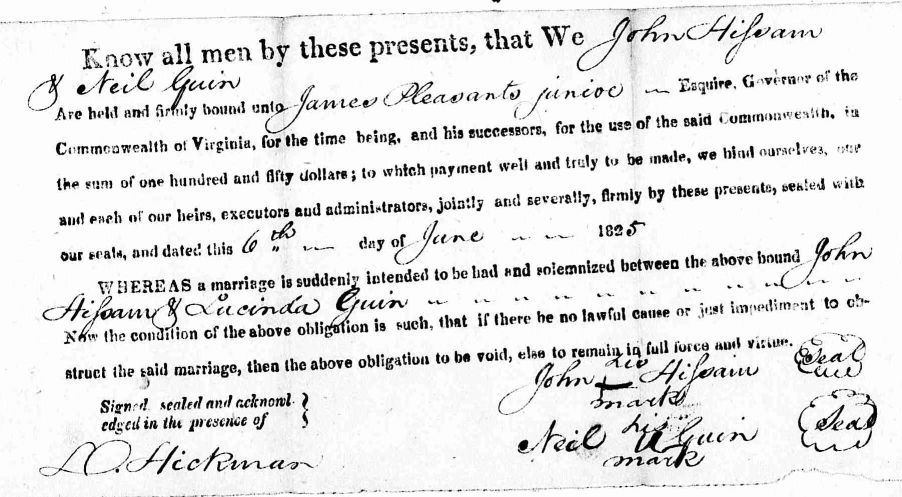 Know all men by these presents, that We John Hissam
& Neil Guin
Are held and firmly bound unto James Pleasants junior — Esquire, Governor of the
Commonwealth of Virginia, for the time being, and his successors, for the use of the said Commonwealth, in
the sum of one hundred and fifty dollars; to which payment well and truly to be made, we bind ourselves, our
and each of our heirs, executors and administrators, jointly and severally, firmly by these presents, sealed with
our seals, and dated this 6th — day of June — — 1825
WHEREAS a marriage is suddenly intended to be had and solemnized between the above bound John
Hissam & Lucinda Guin
Now the condition of the above obligation is such, that if there be no lawful cause or just impediment to ob-
struct the said marriage, then the above obligation to be void, else to remain in full force and virtue.
Signed, sealed and acknowl-
edged in the presence of
John his Hissam Seal
mark
Neil his Guin Seal
mark
Hickman